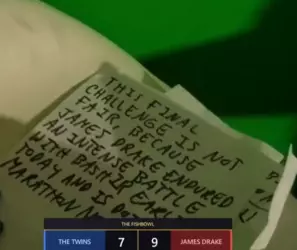 THIS FINAL
CHALLENGE IS NOT
FAIR BECAUSE
JAMES DRAKE ENDURED
AN INTENSE BATTLE
WITH BASHIR EARL
TODAY AND IS
MARATHON
THE FISHBOWL
THE TWINS 7 9 JAMES DRAKE